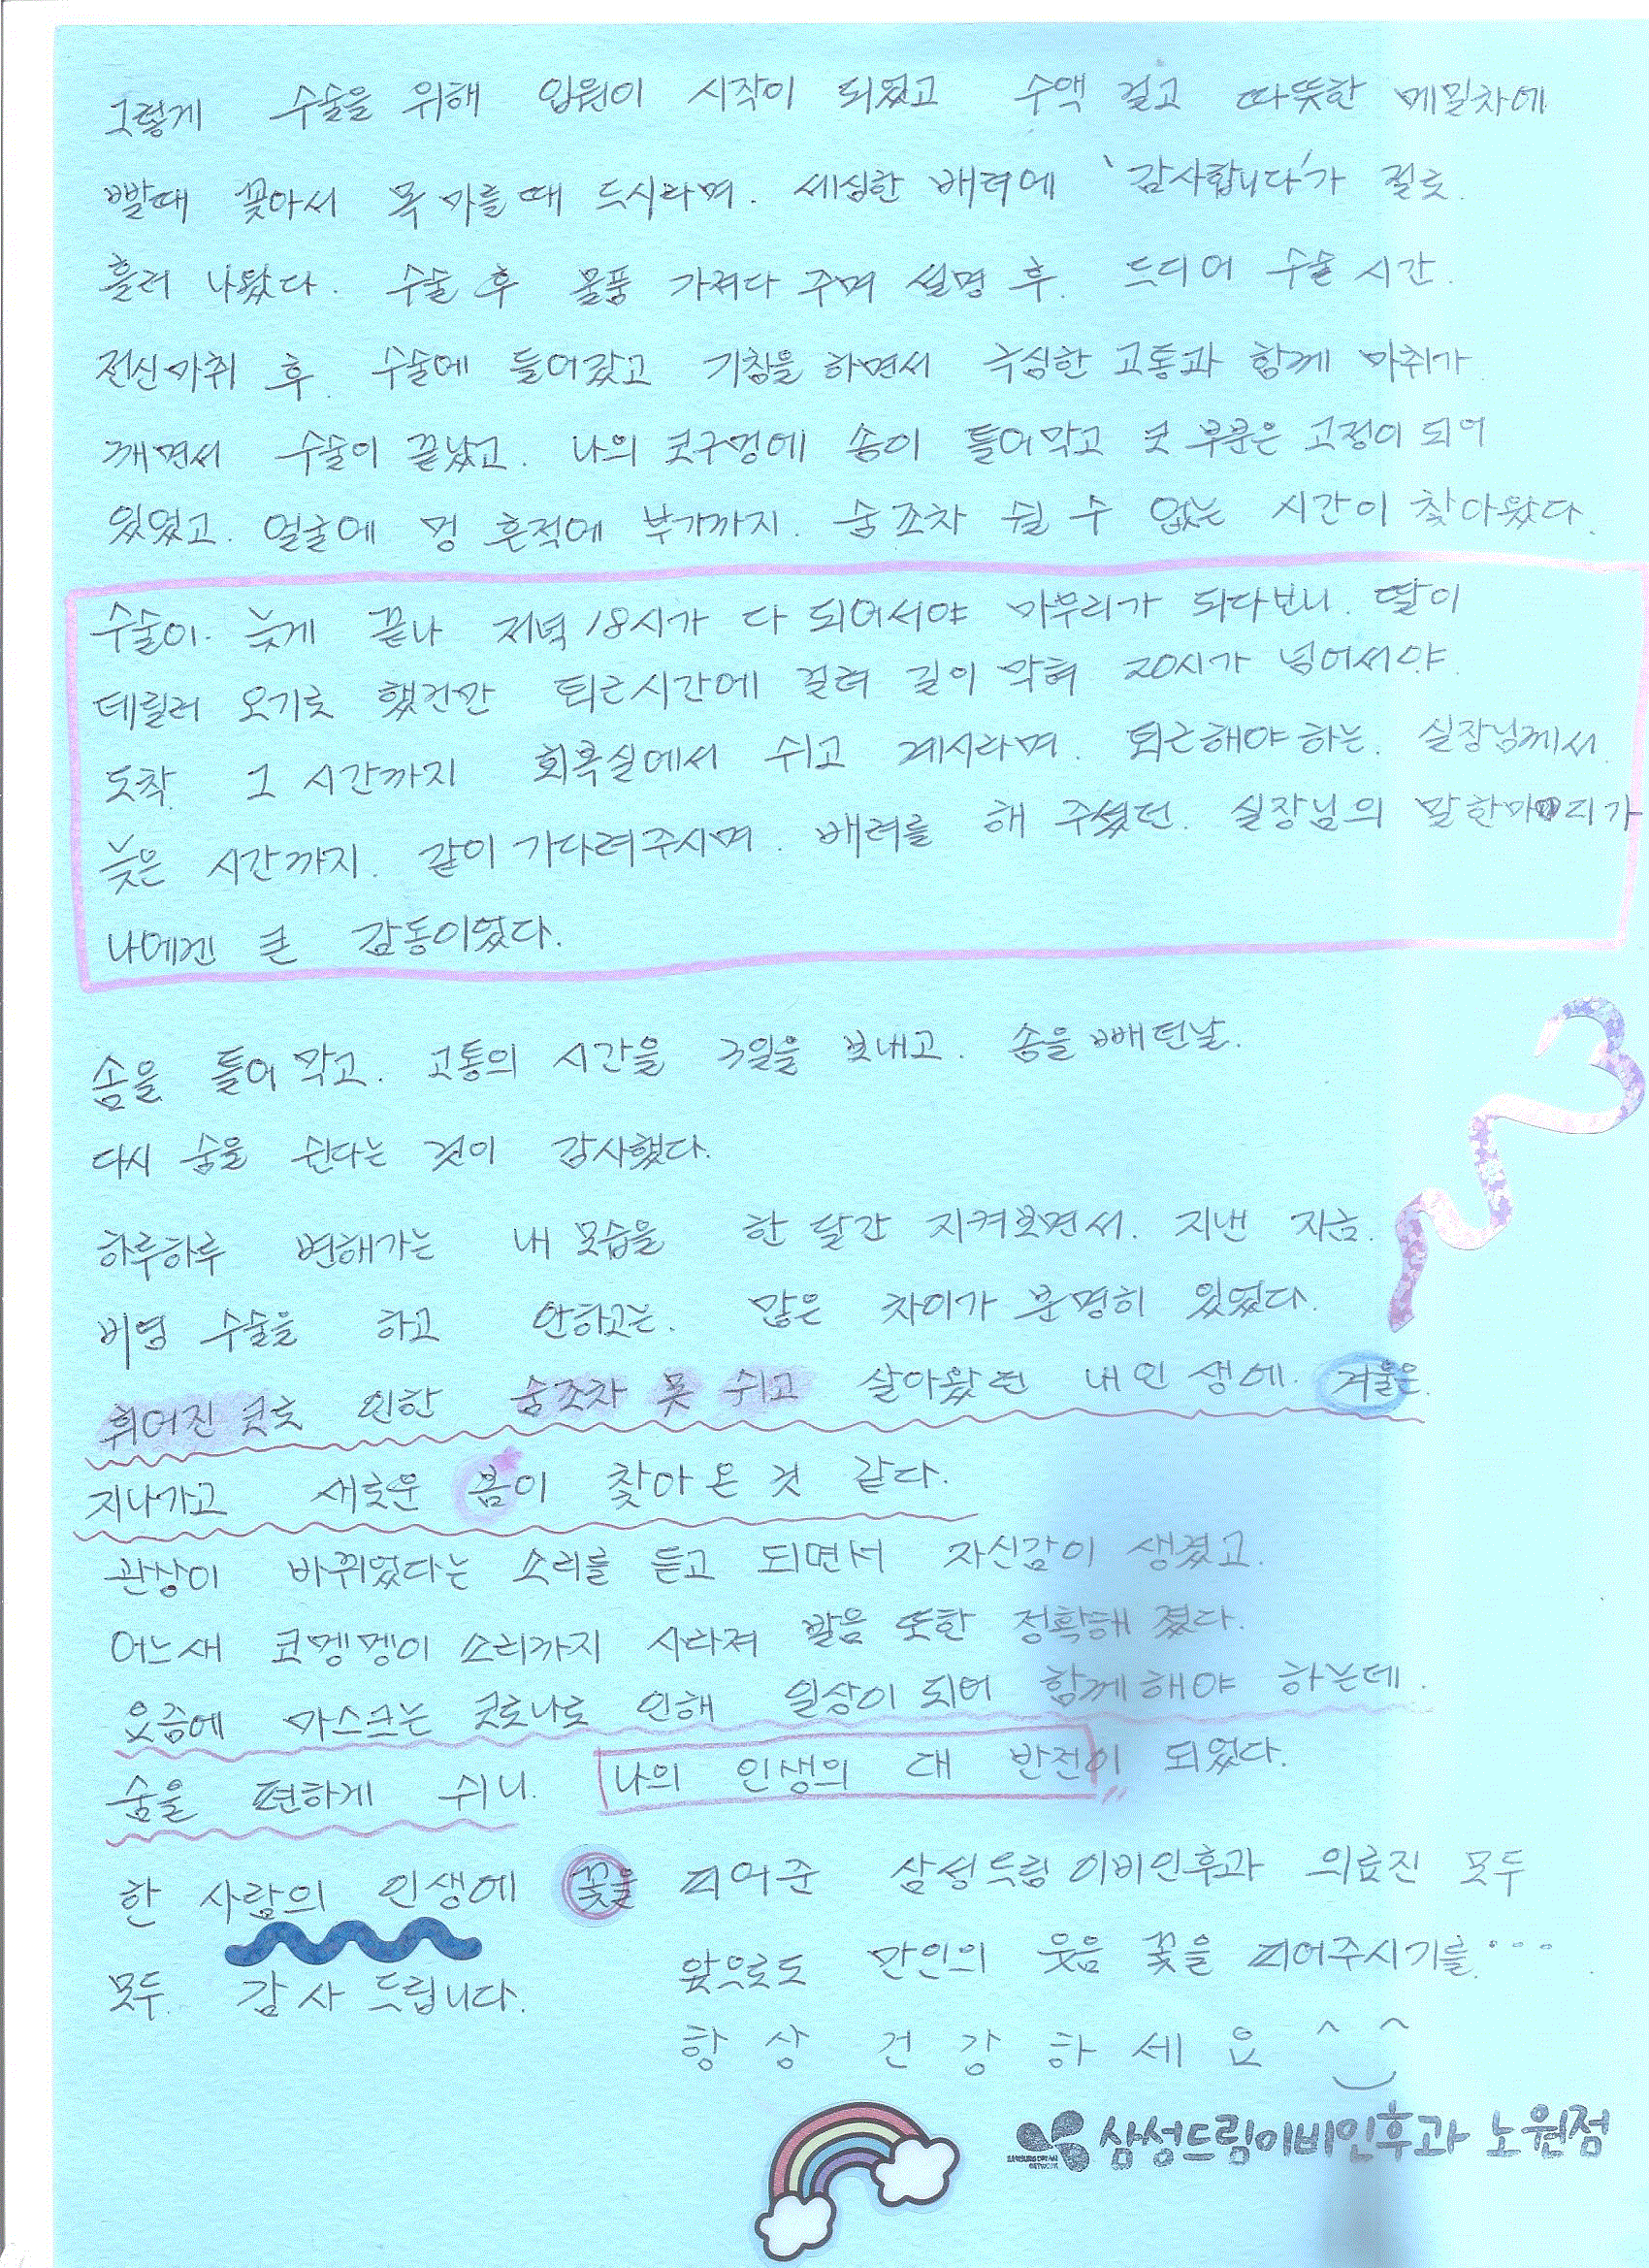 그렇게 수술을 위해 입원이 시작이 되었고 수액 걸고 따뜻한 메밀차에
빨때 꽂아서 목 마를때 드시라며. 세심한 배려에 '감사합니다'가 절로
흘러 나왔다. 수술 후 물품 가져다 주며 설명 후. 드디어 수술 시간.
전신마취 후 수술에 들어갔고 기침을 하면서 극심한 고통과 함께 마취가
깨면서 수술이 끝났고. 나의 코구멍에 솜이 틀어막고 코 부분은 고정이 되어
있었고. 얼굴에 멍 흔적에 부기까지. 숨조차 쉴 수 없는 시간이 찾아왔다.
수술이. 늦게 끝나 저녁 18시가 다 되어서야 마무리가 되다보니. 딸이
데릴러 오기로 했건만 퇴근시간에 걸려 길이 막혀 20시가 넘어서야
도착. 그 시간까지 회복실에서 쉬고 계시라며. 퇴근해야 하는. 실장님께서
늦은 시간까지. 같이 기다려주시며. 배려를 해 주셨던. 실장님의 말한마디가
나에겐 큰 감동이었다.
솜을 틀어 막고. 고통의 시간을 3일을 보내고. 솜을 빼던날.
다시 숨을 쉰다는 것이 감사했다.
하루하루 변해가는 내 모습을 한 달간 지켜보면서. 지낸 지금.
비염 수술을 하고 안하고는. 많은 차이가 분명히 있었다.
휘어진 코로 인한 숨조차 못 쉬고 살아왔던 내 인생에. 겨울은
지나가고 새로운 봄이 찾아 온 것 같다.
관상이 바뀌었다는 소리를 듣고 되면서 자신감이 생겼고.
어느새 코멩멩이 소리까지 사라져 발음 또한 정확해 졌다.
요즘에 마스크는 코로나로 인해 일상이 되어 함께해야 하는데.
숨을 편하게 쉬니. 나의 인생의 대 반전이 되었다.
한 사람의 인생에 꽃을 피어준 삼성드림이비인후과 의료진 모두
모두. 감사 드립니다. 앞으로도 만인의 웃음 꽃을 피어주시기를...
항 상 건 강 하 세 요 ^‿^
삼성드림이비인후과 노원점